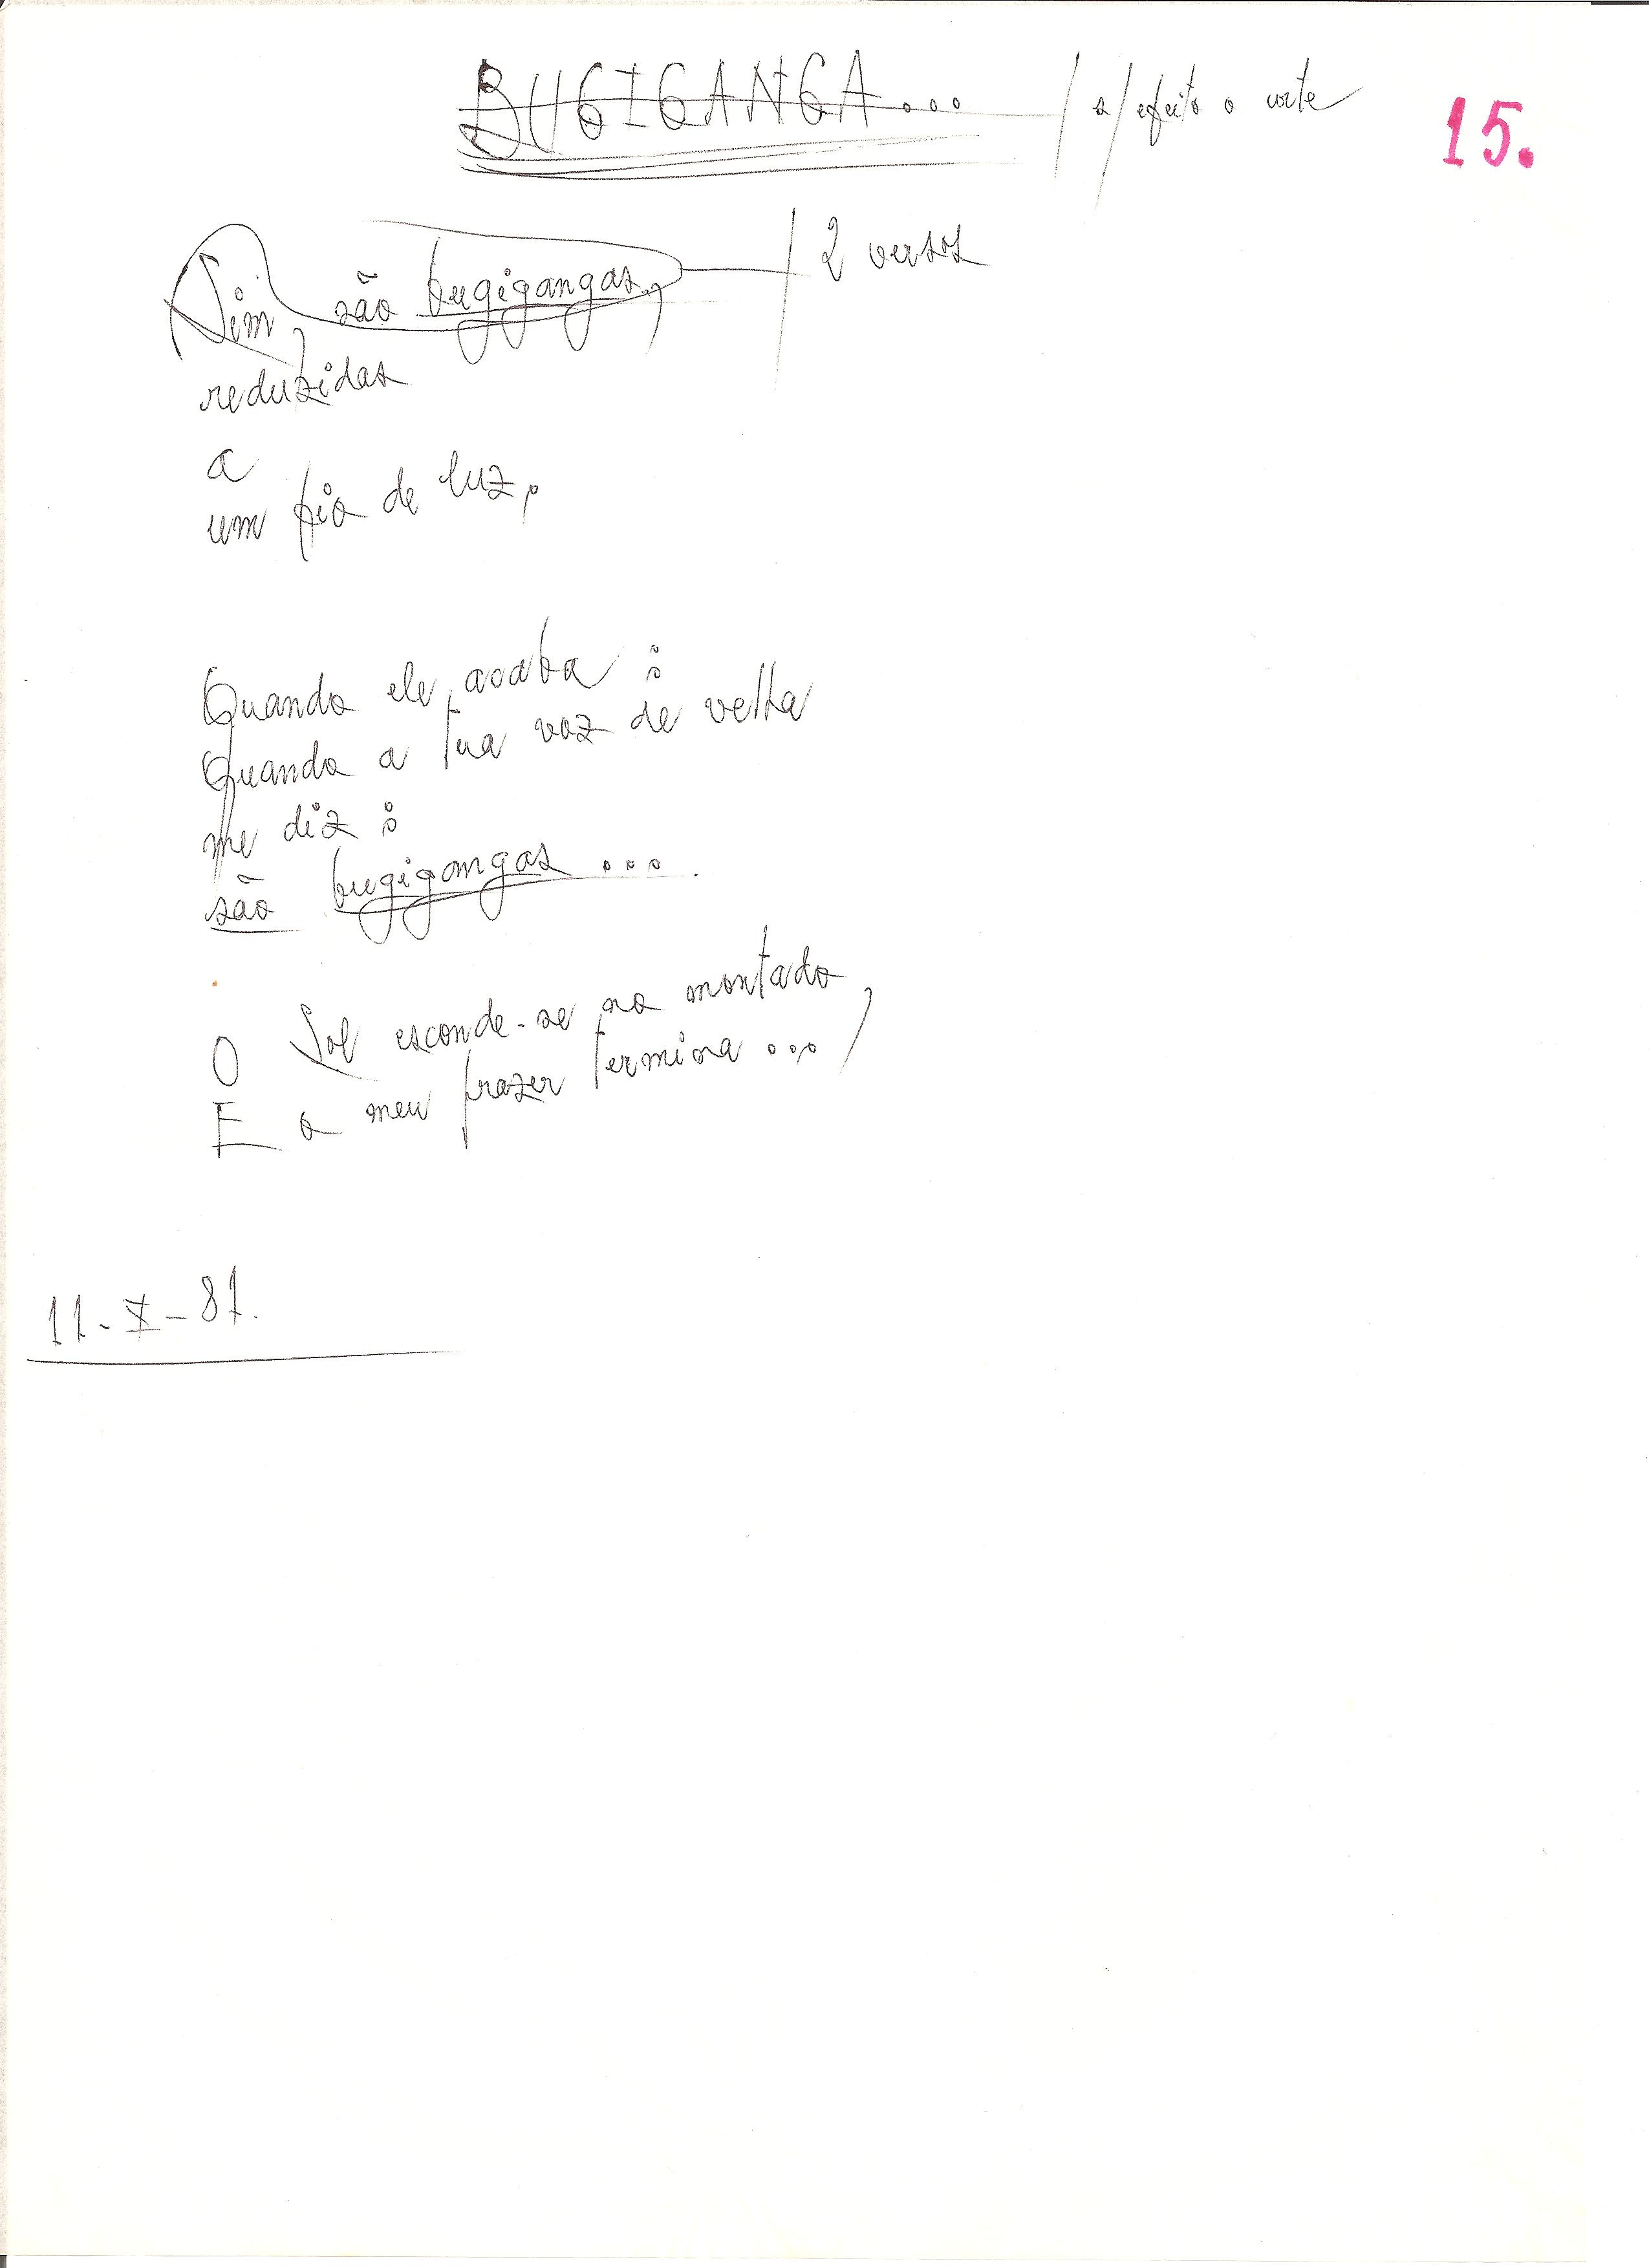 BUGIGANGA... / s/ efeito o corte
15.
Sim, são bugigangas, / 2 versos
reduzidas
a
um fio de luz.
Quando ele acaba:
Quando a tua voz de velha
me diz:
são bugigangas...
O Sol esconde-se no montado,
E o meu prazer termina...
11-X-81.